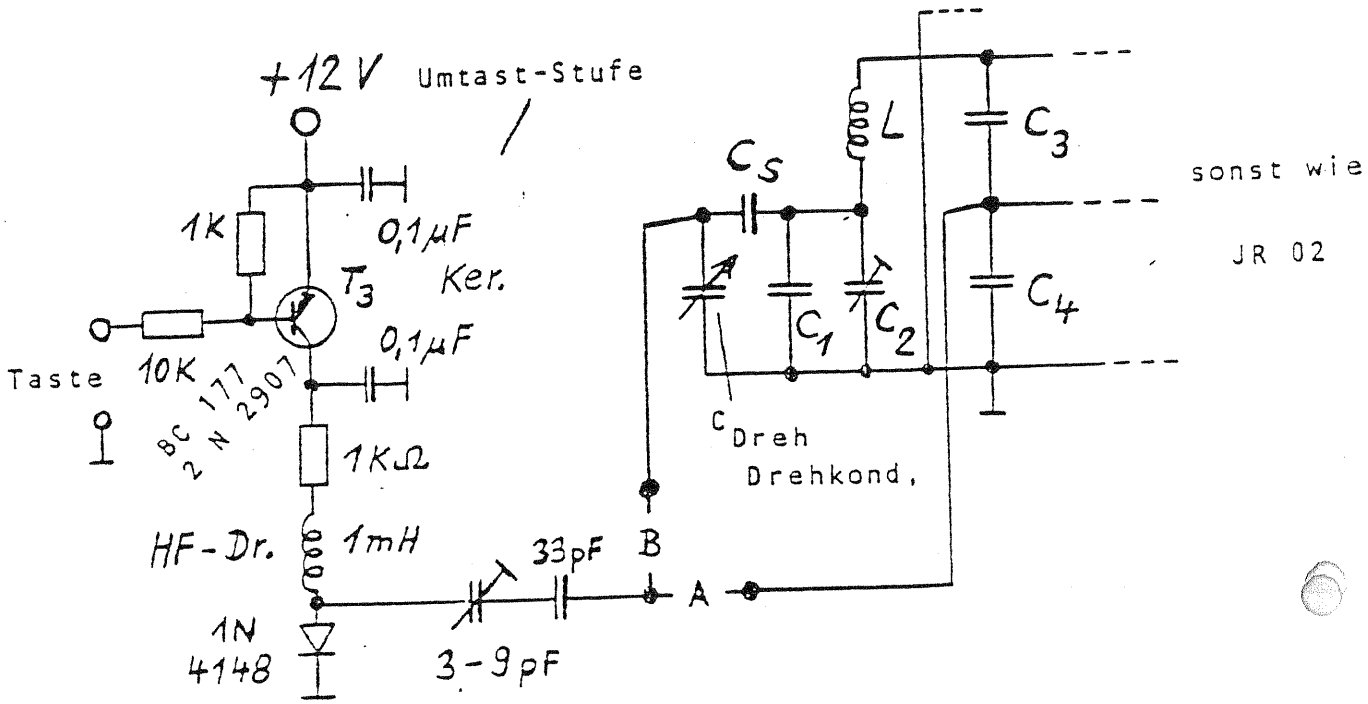 +12V
Umtast-Stufe
1K
0,1µF
Ker.
T3
0,1µF
Taste
10K
BC 177
2 N 2907
1KΩ
HF-Dr.
1mH
1N
4148
3-9pF
33pF
B
A
CS
L
C1
C2
C3
C4
CDreh
Drehkond,
sonst wie
JR 02